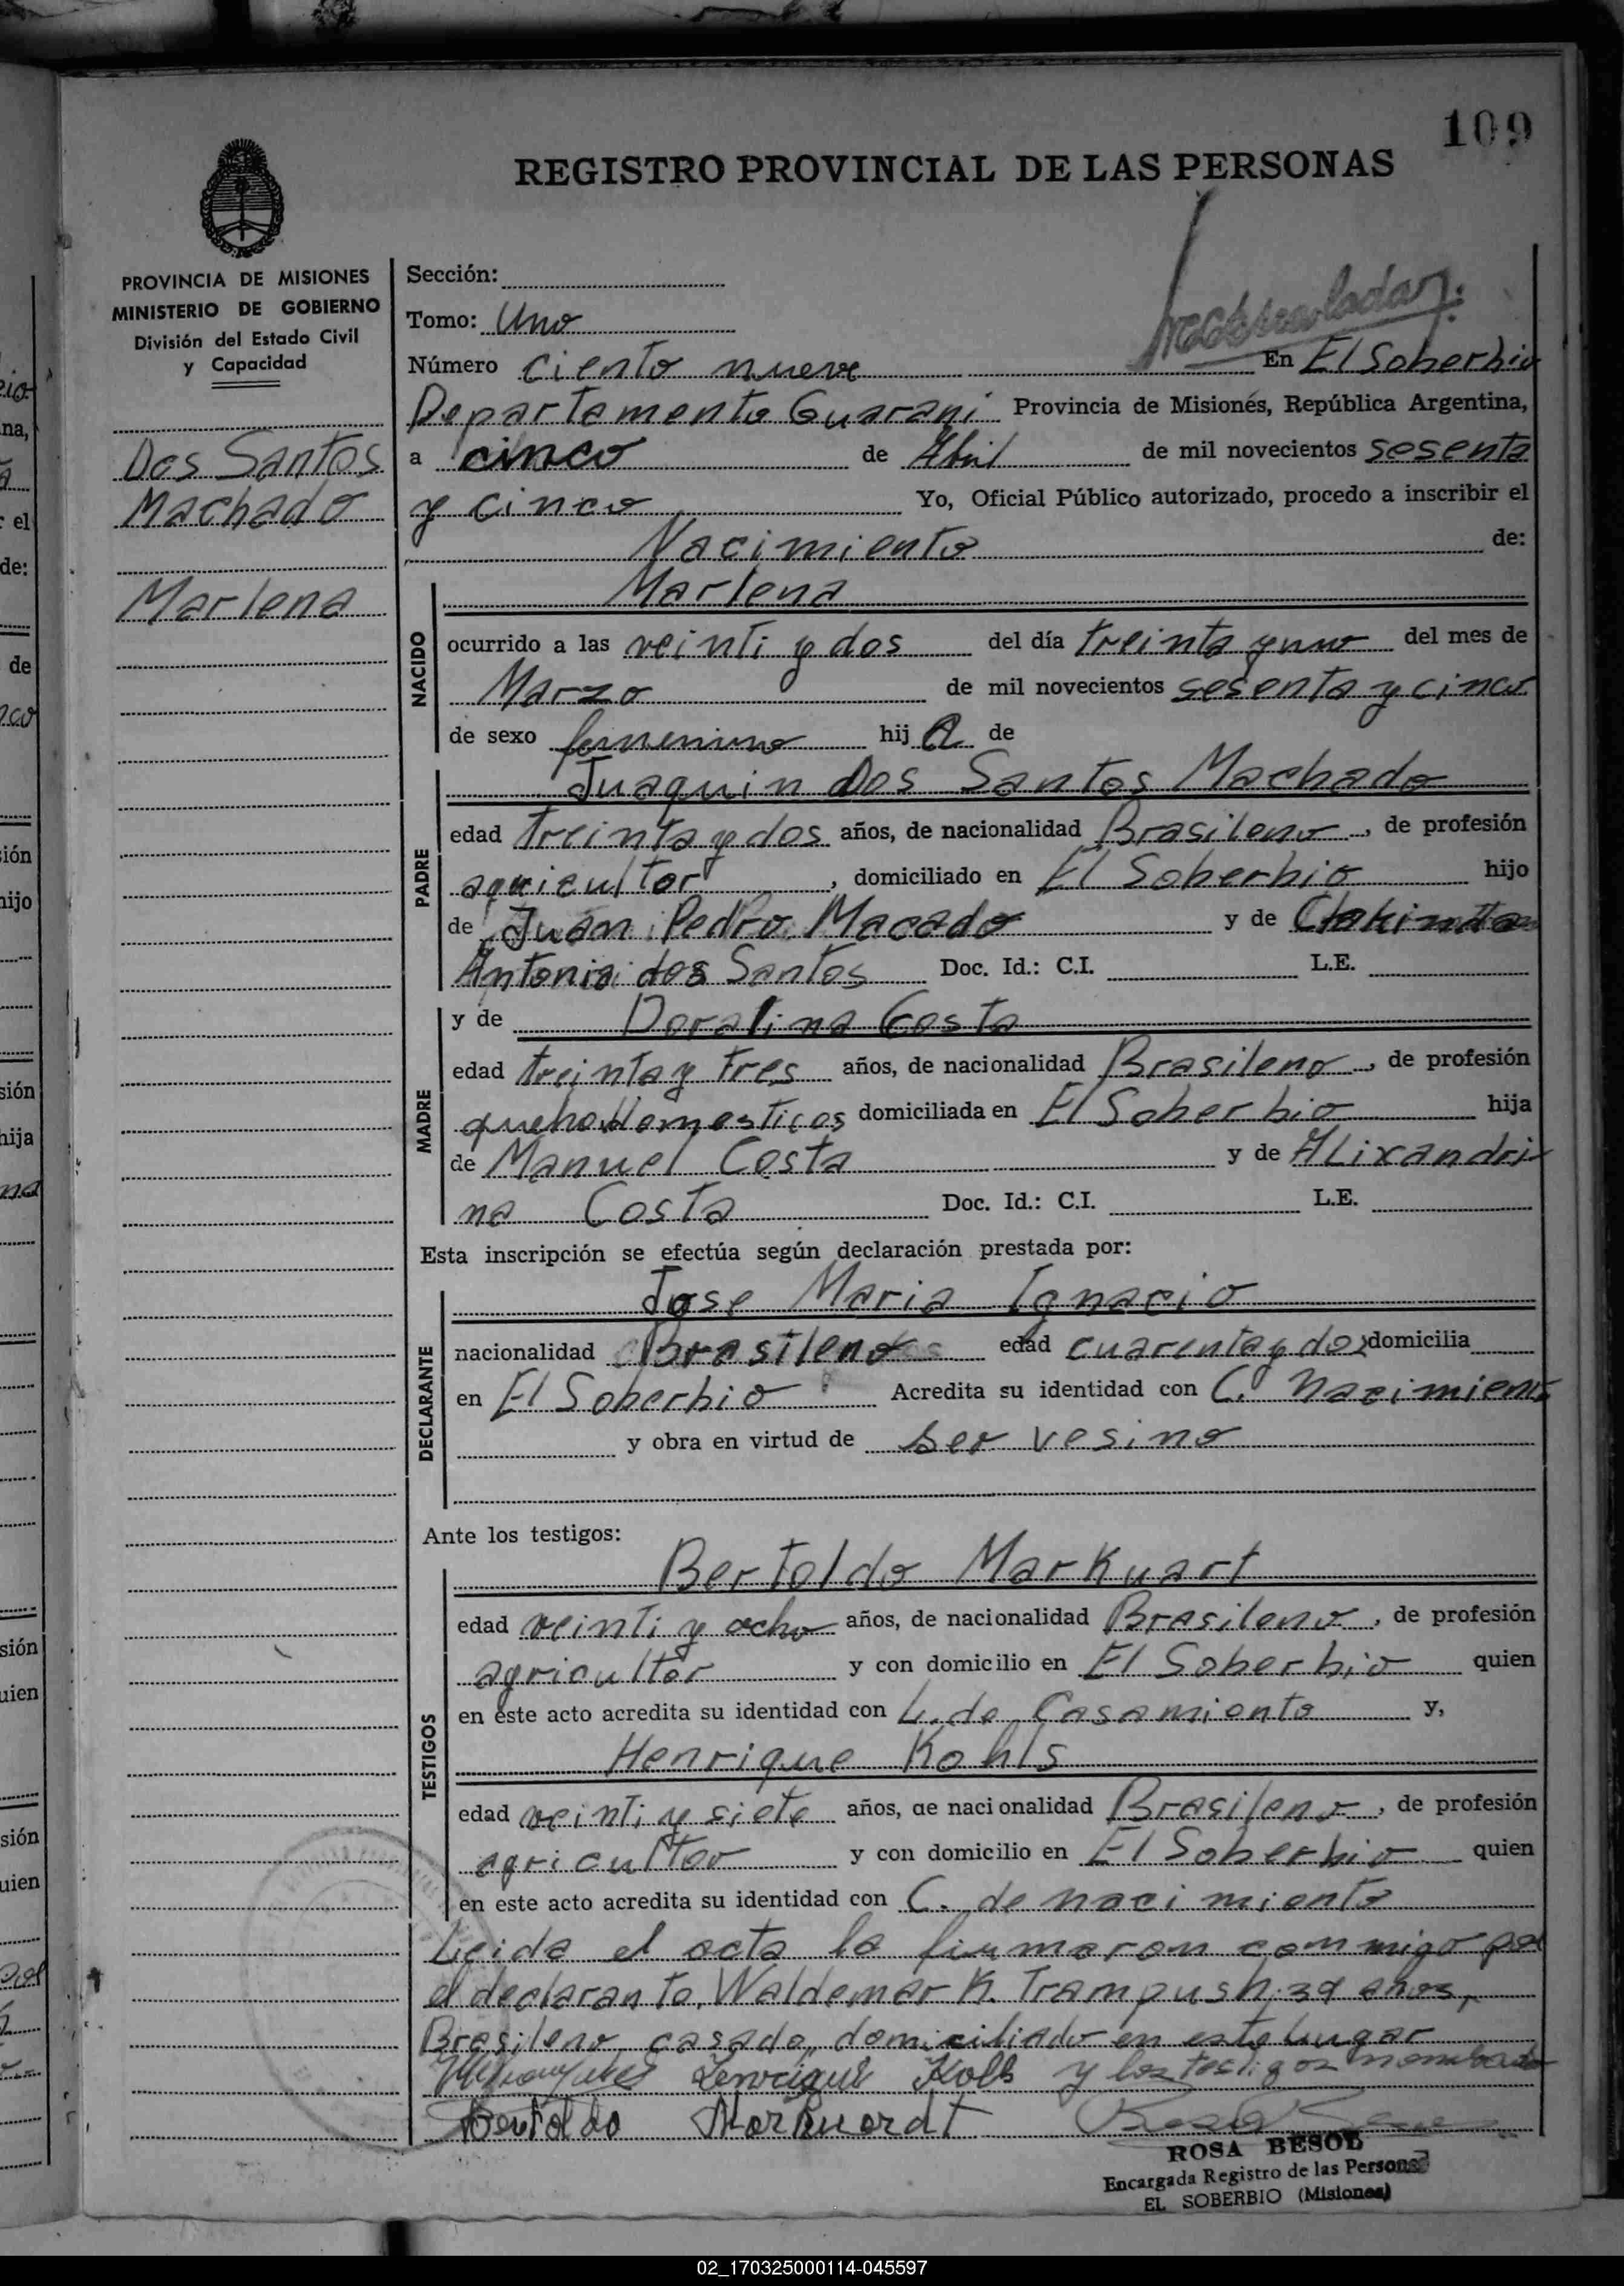 109
REGISTRO PROVINCIAL DE LAS PERSONAS
PROVINCIA DE MISIONES
MINISTERIO DE GOBIERNO
División del Estado Civil
y Capacidad
Dos Santos
Machado
Marlena
Sección:
Tomo: Uno
Número ciento nueve En El Soberbio
Departamento Guarani Provincia de Misiones, República Argentina,
a cinco de Abril de mil novecientos sesenta
y cinco Yo, Oficial Público autorizado, procedo a inscribir el
Nacimiento de:
NACIDO
Marlena
ocurrido a las veinti y dos del día treinta y uno del mes de
Marzo de mil novecientos sesenta y cinco
de sexo femenino hij a de
PADRE
Juaquin Dos Santos Machado
edad treinta y dos años, de nacionalidad Brasileno, de profesión
agricultor, domiciliado en El Soberbio hijo
de Juan Pedro Macado y de
Antonia dos Santos Doc. Id.: C.I. L.E.
MADRE
y de Doralina Costa
edad treinta y tres años, de nacionalidad Brasileno, de profesión
queha. domesticos domiciliada en El Soberbio hija
de Manuel Costa y de Alixandri
na Costa Doc. Id.: C.I. L.E.
Esta inscripción se efectúa según declaración prestada por:
DECLARANTE
Jose Maria Ignacio
nacionalidad Brasileno edad cuarenta y dos domicilia
en El Soberbio Acredita su identidad con C. Nacimiento
y obra en virtud de ser vesino
Ante los testigos:
TESTIGOS
Bertoldo Markuart
edad veinti y ocho años, de nacionalidad Brasileno, de profesión
agricultor y con domicilio en El Soberbio quien
en este acto acredita su identidad con L. de Casamiento y,
Henrique Kohls
edad veinti y siete años, de nacionalidad Brasileno, de profesión
agricultor y con domicilio en El Soberbio quien
en este acto acredita su identidad con C. de nacimiento
Leida el acta la firmaron conmigo por
el declarante, Waldemar K. Trampush, 39 años,
Brasileno, casado, domiciliado en este lugar
Henrique Kolls y los testigos nombrados
Bertoldo Markuardt
ROSA BESOL
Encargada Registro de las Personas
EL SOBERBIO (Misiones)
02_170325000114-045597